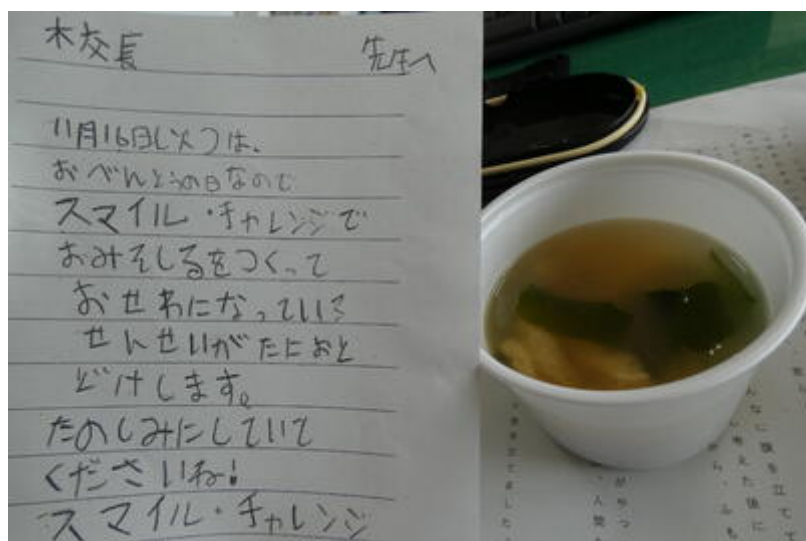 校長 先生へ
11月16日(火)は、
おべんとうの日なので
スマイル・チャレンジで
おみそしるをつくって
おせわになっている
せんせいがたにおと
どけします。
たのしみにしていて
くださいね!
スマイル・チャレンジ